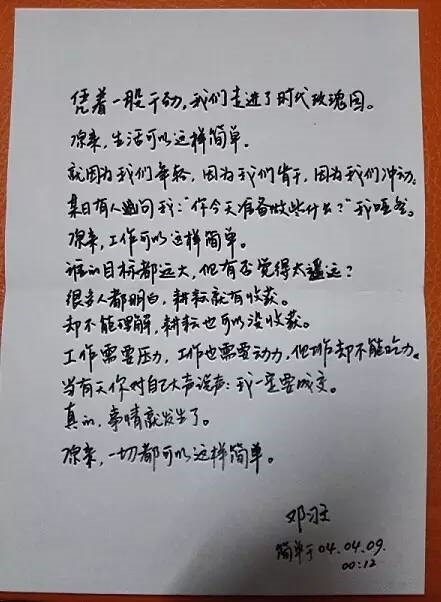 凭着一股干劲，我们走进了时代玫瑰园。
原来，生活可以这样简单。
就因为我们年轻，因为我们肯干，因为我们冲动。
某日有人追问我："你今天准备做些什么？"我哑然。
原来，工作可以这样简单。
谁的目标都远大，但有否觉得太遥远？
很多人都明白，耕耘就有收获。
却不能理解，耕耘也可以没收获。
工作需要压力，工作也需要动力，但工作却不能吃力。
当有天你对自己大声说声：我一定要成交。
真的，事情就发生了。
原来，一切都可以这样简单。
邓
简单于04.04.09.
00:12